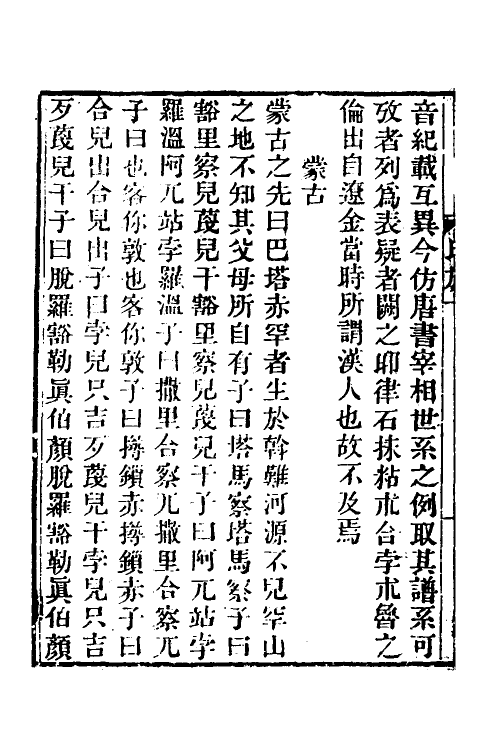 音紀載互異今仿唐書宰相世系之例取其譜系可
攷者列爲表疑者闕之耶律石抹粘朮台孛朮魯之
倫出自遼金當時所謂漢人也故不及焉
蒙古
蒙古之先曰巴塔赤罕者生於斡難河源不兒罕山
之地不知其父母所自有子曰塔馬察塔馬察子曰
豁里察兒蔑兒干豁里察兒蔑兒干子曰阿兀站孛
羅溫阿兀站孛羅溫子曰撒里合察兀撒里合察兀
子曰也客你敦也客你敦子曰撏鎖赤撏鎖赤子曰
合兒出合兒出子曰孛兒只吉歹蔑兒干孛兒只吉
歹蔑兒干子曰脫羅豁勒眞伯顏脫羅豁勒眞伯顏